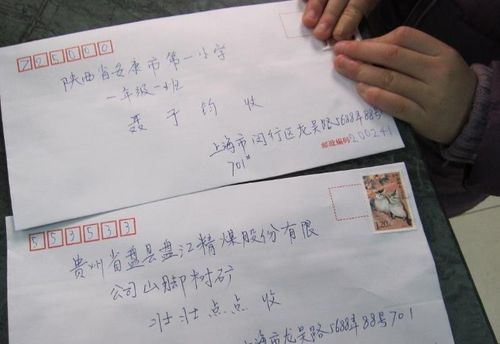 725000
陕西省安康市第一小学
一年级一班
聂于钧 收
上海市闵行区龙吴路5688弄88号
701#
邮政编码 200241
553533
1.20
贵州省盘县盘江精煤股份有限
公司山脚树矿
壮壮点点 收
上海市龙吴路5688弄88号701